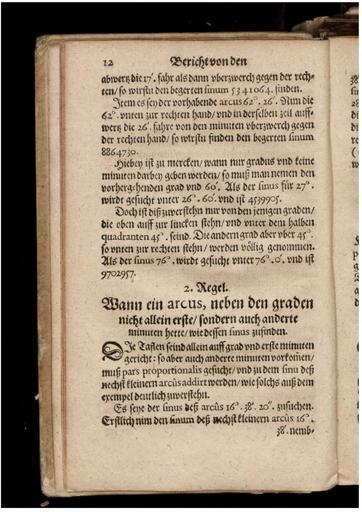 12 Bericht von den
abwertz die 17′. fahr als dann vberzwerch gegen der rech-
ten/ so wirstu den begerten sinum 5341064. finden.
Item es sey der vorhabende arcus 62°. 26′. Nim die
62°. vnten zur rechten hand/ vnd in derselben zeil auff-
wertz die 26′. fahre von den minuten vberzwerch gegen
der rechten hand/ so wirstu finden den begerten sinum
8864730.
Hiebey ist zu mercken/ wann nur gradus vnd keine
minuten darbey geben werden/ so muß man nemen den
vorhergehenden grad vnd 60′. Als der sinus für 27°.
wirdt gesucht vnter 26°. 60′. vnd ist 4539905.
Doch ist diß zuverstehn nur von den jenigen graden/
die oben auff zur lincken stehn/ vnd vnter dem halben
quadranten 45°. seind. Die andern grad aber vber 45°.
so vnten zur rechten stehn/ werden völlig genommen.
Als der sinus 76°. wirdt gesucht vnter 76°. 0′. vnd ist
9702957.
2. Regel.
Wann ein arcus, neben den graden
nicht allein erste/ sondern auch anderte
minuten hette/ wie dessen sinus zufinden.
DIe Tafeln seind allein auff grad vnd erste minuten
gericht: so aber auch andere minuten vorkom̃en/
muß pars proportionalis gesucht/ vnd zu dem sinu deß
nechst kleinern arcus addirt werden/ wie solchs auß dem
exempel deutlich zuverstehn.
Es seye der sinus deß arcûs 16°. 38′. 20″. zusuchen.
Erstlich nim den sinum deß nechst kleinern arcûs 16°.
38′. nemb-